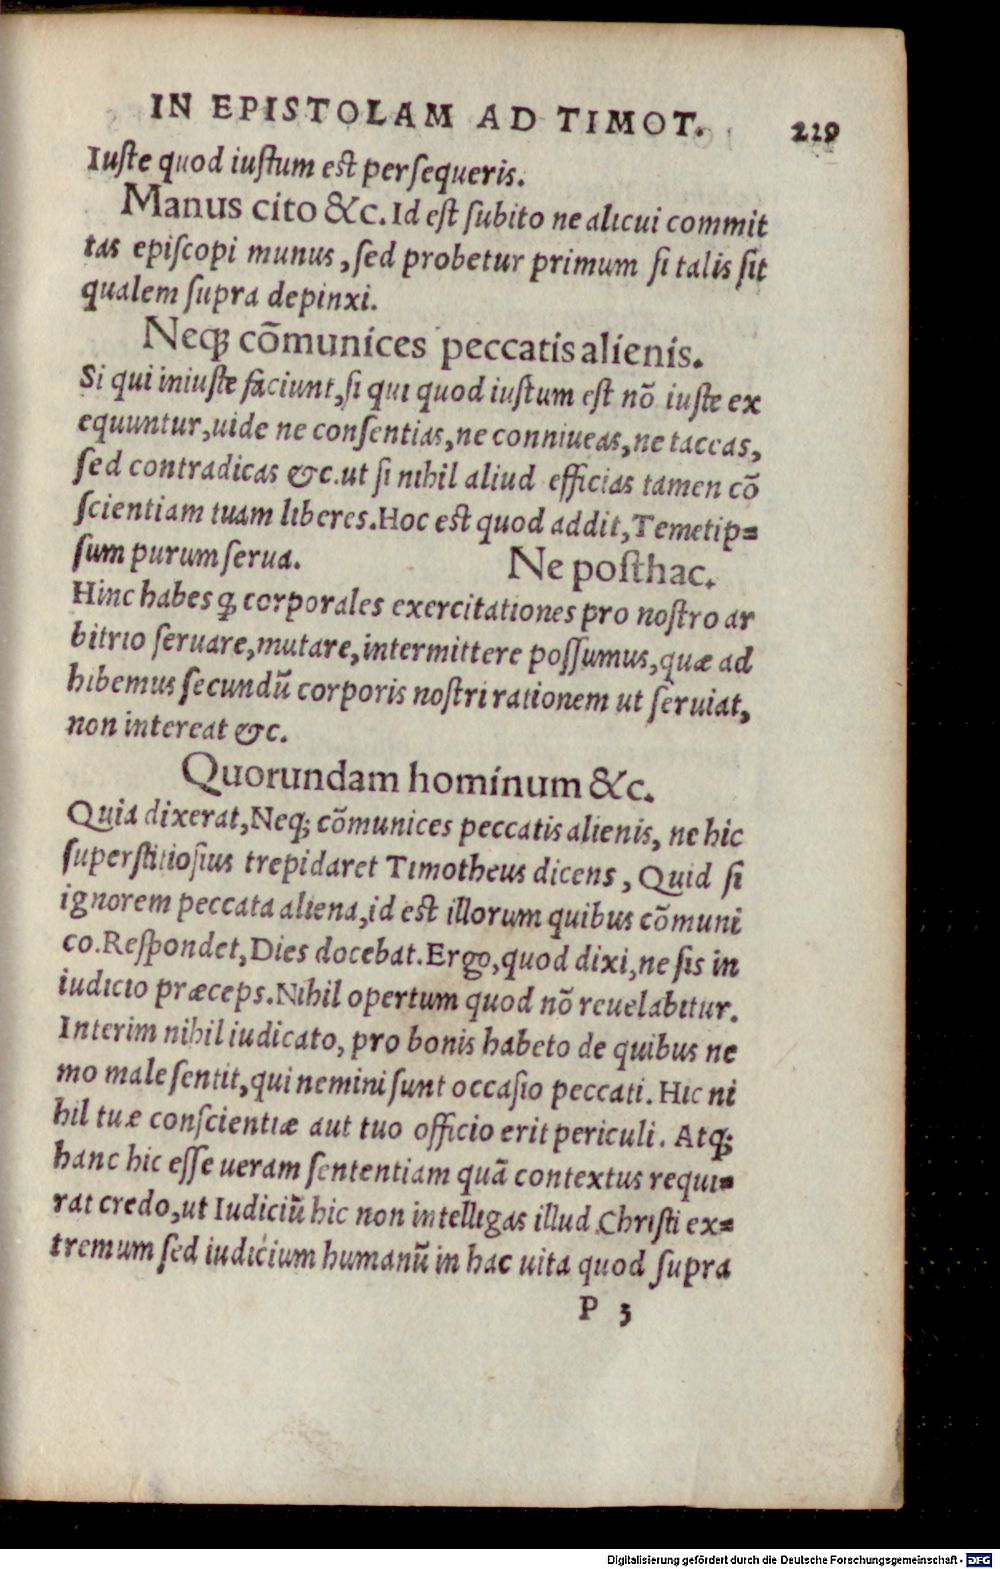 IN EPISTOLAM AD TIMOT. 229
Iuste quod iustum est persequeris.
Manus cito &c. Id est subito ne alicui commit
tas episcopi munus, sed probetur primum si talis sit
qualem supra depinxi.
Neq; cōmunices peccatis alienis.
Si qui iniuste faciunt, si qui quod iustum est nō iuste ex
equuntur, uide ne consentias, ne conniueas, ne taceas,
sed contradicas &c. ut si nihil aliud efficias tamen cō
scientiam tuam liberes. Hoc est quod addit, Temetip=
sum purum serua. Ne posthac.
Hinc habes q̧ corporales exercitationes pro nostro ar
bitrio seruare, mutare, intermittere possumus, quæ ad
hibemus secundū corporis nostri rationem ut seruiat,
non intereat &c.
Quorundam hominum &c.
Quia dixerat, Neq; cōmunices peccatis alienis, ne hic
superstitiosius trepidaret Timotheus dicens, Quid si
ignorem peccata aliena, id est illorum quibus cōmuni
co. Respondet, Dies docebat. Ergo, quod dixi, ne sis in
iudicio præceps. Nihil opertum quod nō reuelabitur.
Interim nihil iudicato, pro bonis habeto de quibus ne
mo male sentit, qui nemini sunt occasio peccati. Hic ni
hil tuæ conscientiæ aut tuo officio erit periculi. Atq;
hanc hic esse ueram sententiam quā contextus requi=
rat credo, ut Iudiciū hic non intelligas illud Christi ex=
tremum sed iudicium humanū in hac uita quod supra
P 3
Digitalisierung gefördert durch die Deutsche Forschungsgemeinschaft - DFG